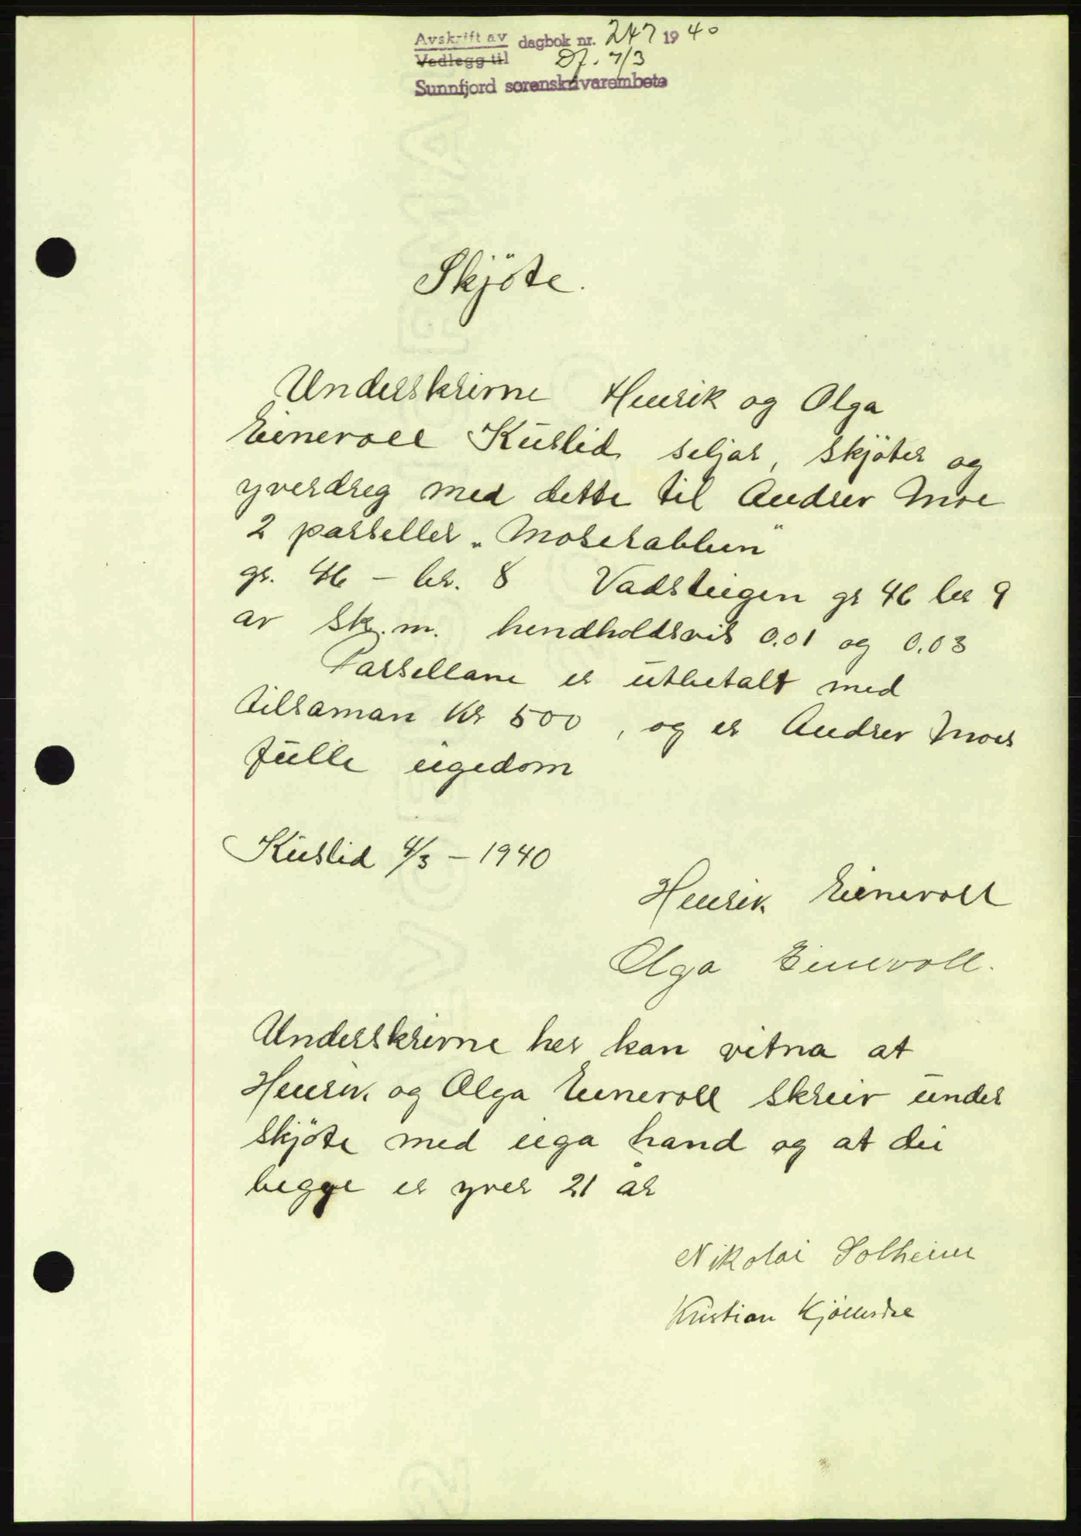 Avskrift av dagbok nr. 247 1940
Vedlegg til Df. 7/3
Sunnfjord sorenskrivarembete
Skjöte.
Underskrivne Henrik og Olga
Einevoll Kuslid seljar, skjöter og
yverdreg med dette til Andrev Moe
2 parseller „Moserabben"
gr. 46 - br. 8 Vadsteigen gr 46 br 9
av Sk.m. hendholdsvis 0.01 og 0.03
Parsellane er utbetalt med
tilsaman kr 500, og er Andrev Moes
fulle eigedom
Kuslid 4/3 - 1940
Henrik Einevoll
Olga Einevoll.
Underskrivne her kan vitna at
Henrik og Olga Einevoll skreiv under
skjöte med eiga hand og at dei
begge er yver 21 år
Nikolai Solheim
Kristian